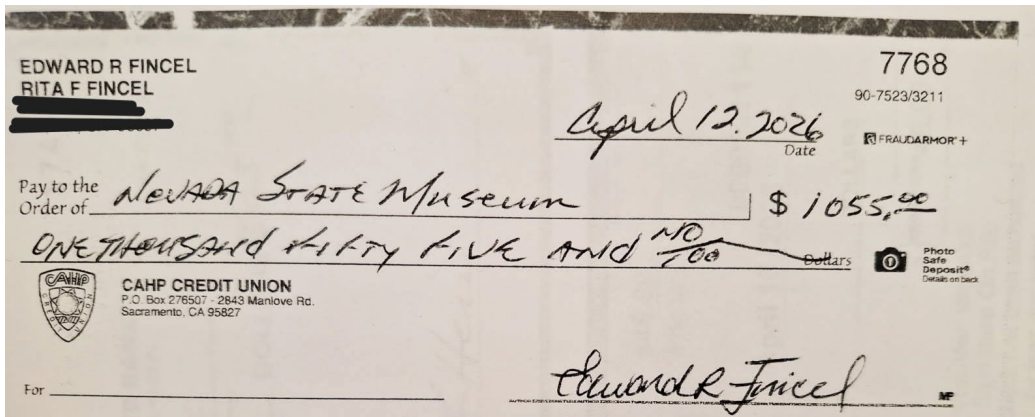 EDWARD R FINCEL
RITA F FINCEL
7768
90-7523/3211
April 12. 2026
Date
FRAUDARMOR®+
Pay to the
Order of
NEVADA STATE MUSEUM
$ 1055.00
ONE THOUSAND FIFTY FIVE AND NO/100
Dollars
Photo
Safe
Deposit®
Details on back
CAHP
CREDIT UNION
CAHP CREDIT UNION
P.O. Box 276507 - 2843 Manlove Rd.
Sacramento, CA 95827
For
Edward R Fincel
MP